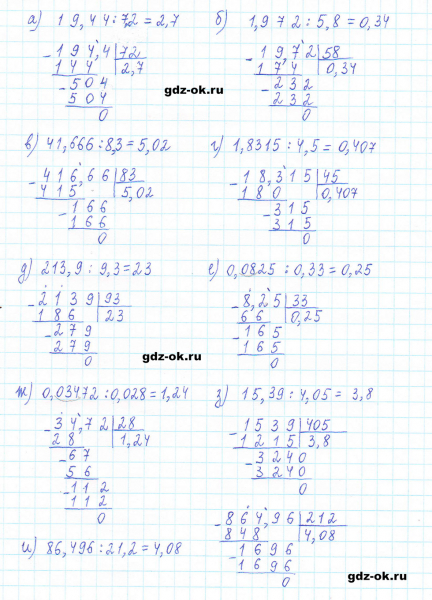 а) 19,44:72=2,7
б) 1,972:5,8=0,34
-194,4|72
144 2,7
-504
504
0
-197,2|58
174 0,34
-232
232
0
gdz-ok.ru
gdz-ok.ru
в) 41,666:8,3=5,02
г) 1,8315:4,5=0,407
-416,66|83
415 5,02
-166
166
0
-18,315|45
180 0,407
-315
315
0
д) 213,9:9,3=23
е) 0,0825:0,33=0,25
-2139|93
186 23
-279
279
0
-8,25|33
66 0,25
-165
165
0
gdz-ok.ru
ж) 0,03472:0,028=1,24
з) 15,39:4,05=3,8
-34,72|28
28 1,24
-67
56
-112
112
0
-1539|405
1215 3,8
-3240
3240
0
и) 86,496:21,2=4,08
-864,96|212
848 4,08
-1696
1696
0
gdz-ok.ru